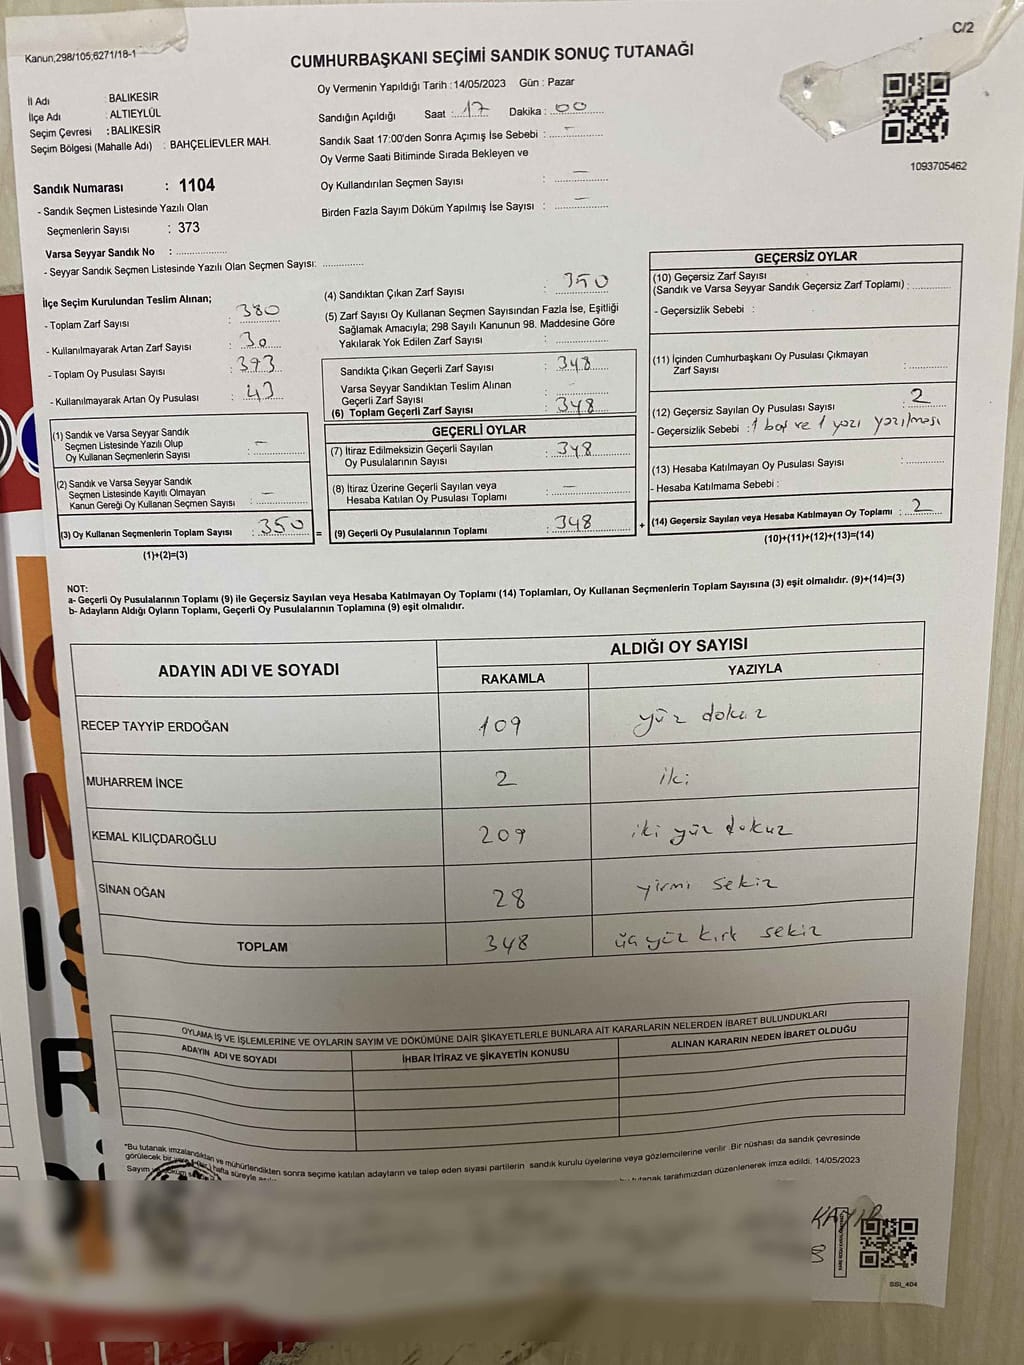 Kanun;298/105;6271/18-1
C/2
CUMHURBAŞKANI SEÇİMİ SANDIK SONUÇ TUTANAĞI
İl Adı : BALIKESİR
İlçe Adı : ALTIEYLÜL
Seçim Çevresi : BALIKESİR
Seçim Bölgesi (Mahalle Adı) : BAHÇELİEVLER MAH.
Sandık Numarası : 1104
- Sandık Seçmen Listesinde Yazılı Olan
Seçmenlerin Sayısı : 373
Varsa Seyyar Sandık No : ................
- Seyyar Sandık Seçmen Listesinde Yazılı Olan Seçmen Sayısı: .............
Oy Vermenin Yapıldığı Tarih : 14/05/2023 Gün : Pazar
Sandığın Açıldığı Saat : 17 Dakika : 00
Sandık Saat 17:00'den Sonra Açımış İse Sebebi : –
Oy Verme Saati Bitiminde Sırada Bekleyen ve
Oy Kullandırılan Seçmen Sayısı : –
Birden Fazla Sayım Döküm Yapılmış İse Sayısı : –
1093705462
İlçe Seçim Kurulundan Teslim Alınan;
- Toplam Zarf Sayısı : 380
- Kullanılmayarak Artan Zarf Sayısı : 30
- Toplam Oy Pusulası Sayısı : 393
- Kullanılmayarak Artan Oy Pusulası : 43
(1) Sandık ve Varsa Seyyar Sandık
Seçmen Listesinde Yazılı Olup
Oy Kullanan Seçmenlerin Sayısı : –
(2) Sandık ve Varsa Seyyar Sandık
Seçmen Listesinde Kayıtlı Olmayan
Kanun Gereği Oy Kullanan Seçmen Sayısı : –
(3) Oy Kullanan Seçmenlerin Toplam Sayısı : 350
(1)+(2)=(3)
=
(4) Sandıktan Çıkan Zarf Sayısı : 350
(5) Zarf Sayısı Oy Kullanan Seçmen Sayısından Fazla İse, Eşitliği
Sağlamak Amacıyla; 298 Sayılı Kanunun 98. Maddesine Göre
Yakılarak Yok Edilen Zarf Sayısı : .............
Sandıkta Çıkan Geçerli Zarf Sayısı : 348
Varsa Seyyar Sandıktan Teslim Alınan
Geçerli Zarf Sayısı : .............
(6) Toplam Geçerli Zarf Sayısı : 348
GEÇERLİ OYLAR
(7) İtiraz Edilmeksizin Geçerli Sayılan
Oy Pusulalarının Sayısı : 348
(8) İtiraz Üzerine Geçerli Sayılan veya
Hesaba Katılan Oy Pusulası Toplamı : –
(9) Geçerli Oy Pusulalarının Toplamı : 348
+
GEÇERSİZ OYLAR
(10) Geçersiz Zarf Sayısı
(Sandık ve Varsa Seyyar Sandık Geçersiz Zarf Toplamı) : ..........
- Geçersizlik Sebebi :
(11) İçinden Cumhurbaşkanı Oy Pusulası Çıkmayan
Zarf Sayısı : ..........
(12) Geçersiz Sayılan Oy Pusulası Sayısı : 2
- Geçersizlik Sebebi : 1 boş ve 1 yazı yazılması
(13) Hesaba Katılmayan Oy Pusulası Sayısı : ..........
- Hesaba Katılmama Sebebi :
(14) Geçersiz Sayılan veya Hesaba Katılmayan Oy Toplamı : 2
(10)+(11)+(12)+(13)=(14)
NOT:
a- Geçerli Oy Pusulalarının Toplamı (9) ile Geçersiz Sayılan veya Hesaba Katılmayan Oy Toplamı (14) Toplamları, Oy Kullanan Seçmenlerin Toplam Sayısına (3) eşit olmalıdır. (9)+(14)=(3)
b- Adayların Aldığı Oyların Toplamı, Geçerli Oy Pusulalarının Toplamına (9) eşit olmalıdır.
ADAYIN ADI VE SOYADI
ALDIĞI OY SAYISI
RAKAMLA YAZIYLA
RECEP TAYYİP ERDOĞAN 109 yüz dokuz
MUHARREM İNCE 2 iki
KEMAL KILIÇDAROĞLU 209 iki yüz dokuz
SİNAN OĞAN 28 yirmi sekiz
TOPLAM 348 üç yüz kırk sekiz
OYLAMA İŞ VE İŞLEMLERİNE VE OYLARIN SAYIM VE DÖKÜMÜNE DAİR ŞİKAYETLERLE BUNLARA AİT KARARLARIN NELERDEN İBARET BULUNDUKLARI
ADAYIN ADI VE SOYADI İHBAR İTİRAZ VE ŞİKAYETİN KONUSU ALINAN KARARIN NEDEN İBARET OLDUĞU
*Bu tutanak imzalandıktan ve mühürlendikten sonra seçime katılan adayların ve talep eden siyasi partilerin sandık kurulu üyelerine veya gözlemcilerine verilir. Bir nüshası da sandık çevresinde
görülecek bir yere hafta süreyle
Sayım tutanak tarafımızdan düzenlenerek imza edildi. 14/05/2023
SSI_404